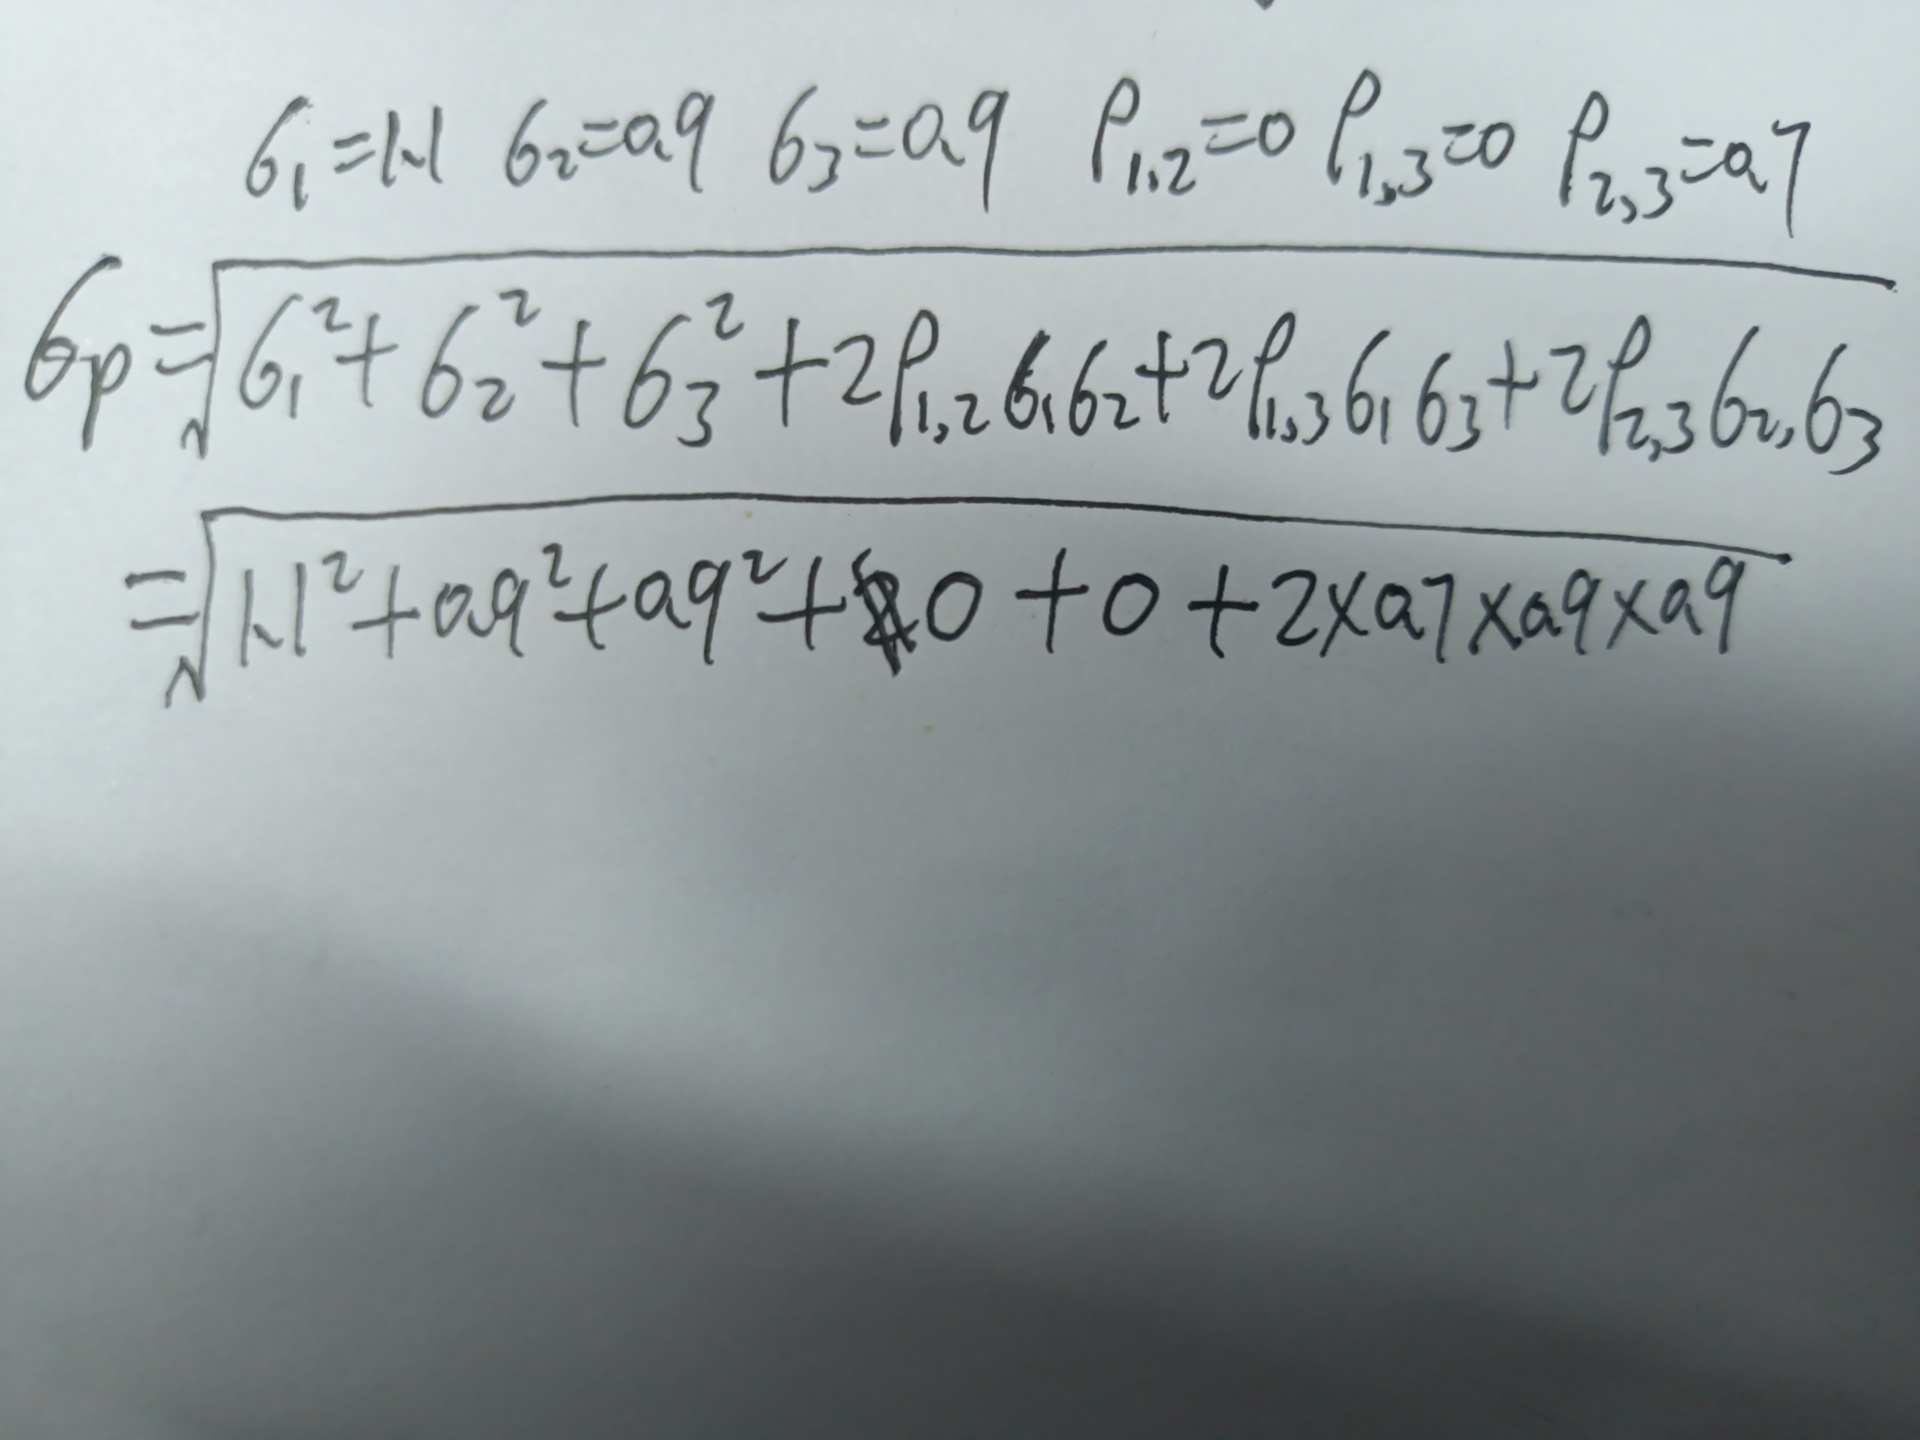 σ₁=1.1 σ₂=0.9 σ₃=0.9 ρ₁,₂=0 ρ₁,₃=0 ρ₂,₃=0.7
σp=√(σ₁²+σ₂²+σ₃²+2ρ₁,₂σ₁σ₂+2ρ₁,₃σ₁σ₃+2ρ₂,₃σ₂,σ₃)
=√(1.1²+0.9²+0.9²+0+0+2×0.7×0.9×0.9)